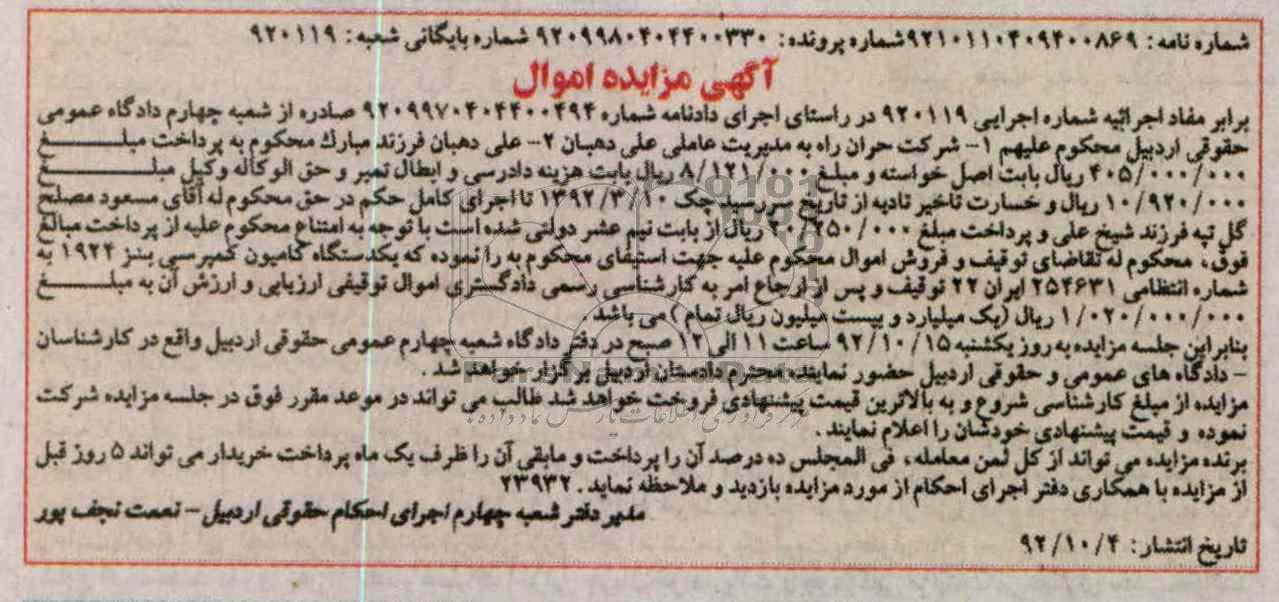 شماره نامه: ۹۲۱۰۱۱۰۴۰۹۴۰۰۸۶۹ شماره پرونده: ۹۲۰۹۹۸۰۴۰۴۴۰۰۳۳۰ شماره بایگانی شعبه: ۹۲۰۱۱۹
آگهی مزایده اموال
برابر مفاد اجرائیه شماره اجرایی ۹۲۰۱۱۹ در راستای اجرای دادنامه شماره ۹۲۰۹۹۷۰۴۰۴۴۰۰۴۹۴ صادره از شعبه چهارم دادگاه عمومی
حقوقی اردبیل محکوم علیهم ۱- شرکت حران راه به مدیریت عاملی علی دهبان ۲- علی دهبان فرزند مبارک محکوم به پرداخت مبلغ
۴۰۵/۰۰۰/۰۰۰ ریال بابت اصل خواسته و مبلغ ۸/۱۲۱/۰۰۰ ریال بابت هزینه دادرسی و ابطال تمبر و حق الوکاله وکیل مبلغ
۱۰/۹۲۰/۰۰۰ ریال و خسارت تاخیر تادیه از تاریخ سررسید چک ۱۳۹۲/۳/۱۰ تا اجرای کامل حکم در حق محکوم له آقای مسعود مصلح
گل تپه فرزند شیخ علی و پرداخت مبلغ ۲۰/۲۵۰/۰۰۰ ریال از بابت نیم عشر دولتی شده است با توجه به امتناع محکوم علیه از پرداخت مبالغ
فوق، محکوم له تقاضای توقیف و فروش اموال محکوم علیه جهت استیفای محکوم به را نموده که یکدستگاه کامیون کمپرسی بنز ۱۹۲۴ به
شماره انتظامی ۲۵۴۶۳۱ ایران ۲۲ توقیف و پس از ارجاع امر به کارشناسی رسمی دادگستری اموال توقیفی ارزیابی و ارزش آن به مبلغ
۱/۰۲۰/۰۰۰/۰۰۰ ریال (یک میلیارد و بیست میلیون ریال تمام) می باشد.
بنابراین جلسه مزایده به روز یکشنبه ۹۲/۱۰/۱۵ ساعت ۱۱ الی ۱۲ صبح در دفتر دادگاه شعبه چهارم عمومی حقوقی اردبیل واقع در کارشناسان
- دادگاه های عمومی و حقوقی اردبیل حضور نماینده محترم دادستان اردبیل برگزار خواهد شد.
مزایده از مبلغ کارشناسی شروع و به بالاترین قیمت پیشنهادی فروخت خواهد شد طالب می تواند در موعد مقرر فوق در جلسه مزایده شرکت
نموده و قیمت پیشنهادی خودشان را اعلام نمایند.
برنده مزایده می تواند از کل ثمن معامله، فی المجلس ده درصد آن را پرداخت و مابقی آن را ظرف یک ماه پرداخت خریدار می تواند ۵ روز قبل
از مزایده با همکاری دفتر اجرای احکام از مورد مزایده بازدید و ملاحظه نماید. ۲۳۹۳۲
مدیر دفتر شعبه چهارم اجرای احکام حقوقی اردبیل - نعمت نجف پور
تاریخ انتشار: ۹۲/۱۰/۴